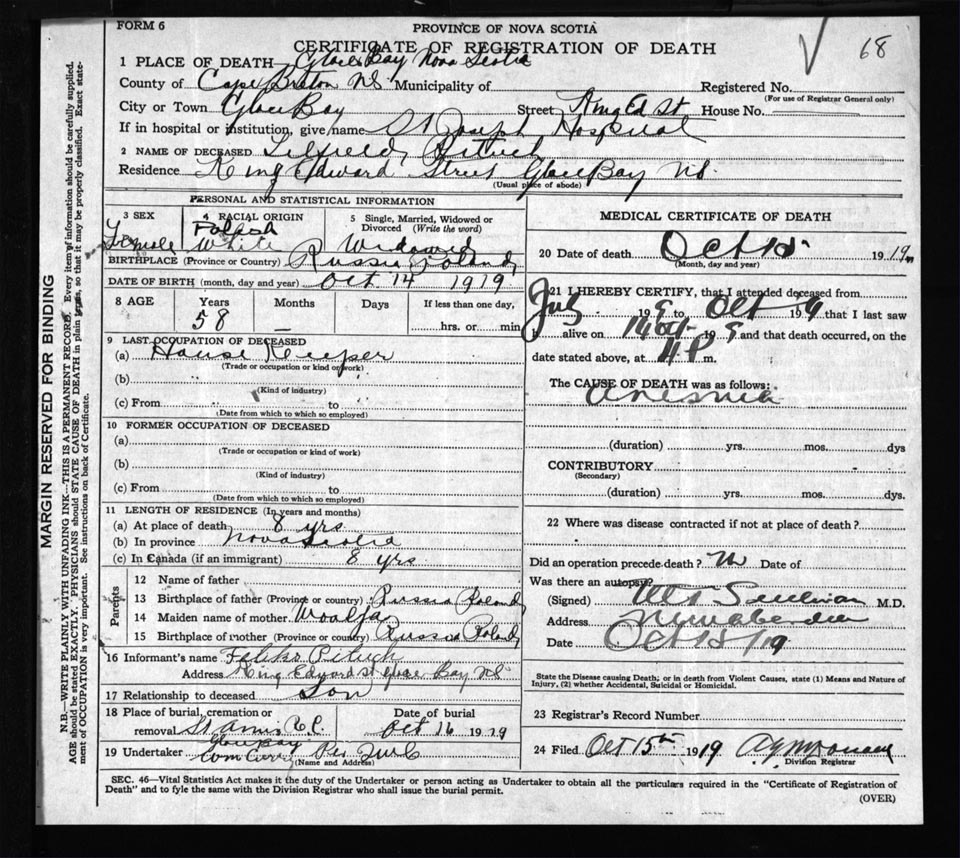 FORM 6
PROVINCE OF NOVA SCOTIA
CERTIFICATE OF REGISTRATION OF DEATH
68
1 PLACE OF DEATH Glace Bay Nova Scotia
County of Cape Breton NS Municipality of
Registered No.
(For use of Registrar General only)
City or Town Glace Bay Street King Ed St House No.
If in hospital or institution, give name St Joseph Hospital
2 NAME OF DECEASED Pituch
Residence King Edward Street Glace Bay NS.
(Usual place of abode)
PERSONAL AND STATISTICAL INFORMATION
3 SEX
Female
4 RACIAL ORIGIN
Polish
White
5 Single, Married, Widowed or Divorced (Write the word)
Widowed
BIRTHPLACE (Province or Country) Russia Poland
DATE OF BIRTH (month, day and year) Oct 14 1919
8 AGE Years Months Days If less than one day,
58 — hrs. or min
9 LAST OCCUPATION OF DECEASED
(a) House Keeper
(Trade or occupation or kind of work)
(b)
(Kind of industry)
(c) From to
(Date from which to which so employed)
10 FORMER OCCUPATION OF DECEASED
(a)
(Trade or occupation or kind of work)
(b)
(Kind of industry)
(c) From to
(Date from which to which so employed)
11 LENGTH OF RESIDENCE (In years and months)
(a) At place of death 8 yrs
(b) In province Nova Scotia
(c) In Canada (if an immigrant) 8 yrs
Parents
12 Name of father
13 Birthplace of father (Province or country) Russia Poland
14 Maiden name of mother
15 Birthplace of mother (Province or country) Russia Poland
16 Informant's name Pituch
Address King Edward St Glace Bay NS
17 Relationship to deceased Son
18 Place of burial, cremation or removal St Anns R.C. Glace Bay
Date of burial
Oct 16 1919
19 Undertaker
(Name and Address)
MEDICAL CERTIFICATE OF DEATH
20 Date of death Oct 15 1919
(Month, day and year)
21 I HEREBY CERTIFY, that I attended deceased from
July 199 to Oct 199 that I last saw
h alive on 14 Oct 199 and that death occurred, on the
date stated above, at P m.
The CAUSE OF DEATH was as follows:
(duration) yrs. mos. dys
CONTRIBUTORY
(Secondary)
(duration) yrs. mos. dys.
22 Where was disease contracted if not at place of death?
Did an operation precede death? No Date of
Was there an autopsy?
(Signed) Sullivan M.D.
Address New Aberdeen
Date Oct 15/19
State the Disease causing Death; or in death from Violent Causes, state (1) Means and Nature of Injury, (2) whether Accidental, Suicidal or Homicidal.
23 Registrar's Record Number
24 Filed Oct 15th 1919
Division Registrar
SEC. 46—Vital Statistics Act makes it the duty of the Undertaker or person acting as Undertaker to obtain all the particulars required in the "Certificate of Registration of
Death" and to fyle the same with the Division Registrar who shall issue the burial permit.
(OVER)
MARGIN RESERVED FOR BINDING
N.B.—WRITE PLAINLY WITH UNFADING INK—THIS IS A PERMANENT RECORD. Every item of information should be carefully supplied.
AGE should be stated EXACTLY. PHYSICIANS should STATE CAUSE OF DEATH in plain terms, so that it may be properly classified. Exact statement of OCCUPATION is very important. See instructions on back of Certificate.